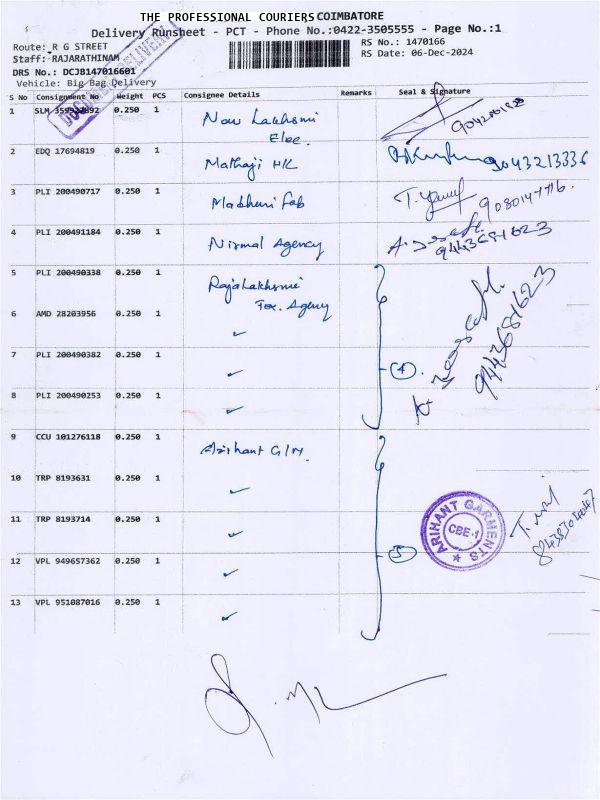 THE PROFESSIONAL COURIERS COIMBATORE
Delivery Runsheet - PCT - Phone No.:0422-3505555 - Page No.:1
Route: R G STREET
RS No.: 1470166
Staff: RAJARATHINAM
RS Date: 06-Dec-2024
DRS No.: DCJB147016601
Vehicle: Big Bag Delivery
S No Consignment No Weight PCS Consignee Details Remarks Seal & Signature
1 SLM 0.250 1 New Lakhsmi Elec.
2 EDQ 17694819 0.250 1 Mathaji HK 9043213336
3 PLI 200490717 0.250 1 Madhuri Fab
4 PLI 200491184 0.250 1 Nirmal Agency 9443681623
5 PLI 200490338 0.250 1 Rajalakhsmi Fox. Agency
6 AMD 28203956 0.250 1
7 PLI 200490382 0.250 1
4
9443681623
8 PLI 200490253 0.250 1
9 CCU 101276118 0.250 1 Arihant G/M.
10 TRP 8193631 0.250 1
11 TRP 8193714 0.250 1
ARIHANT GARMENTS
CBE-1
5
12 VPL 949657362 0.250 1
13 VPL 951087016 0.250 1